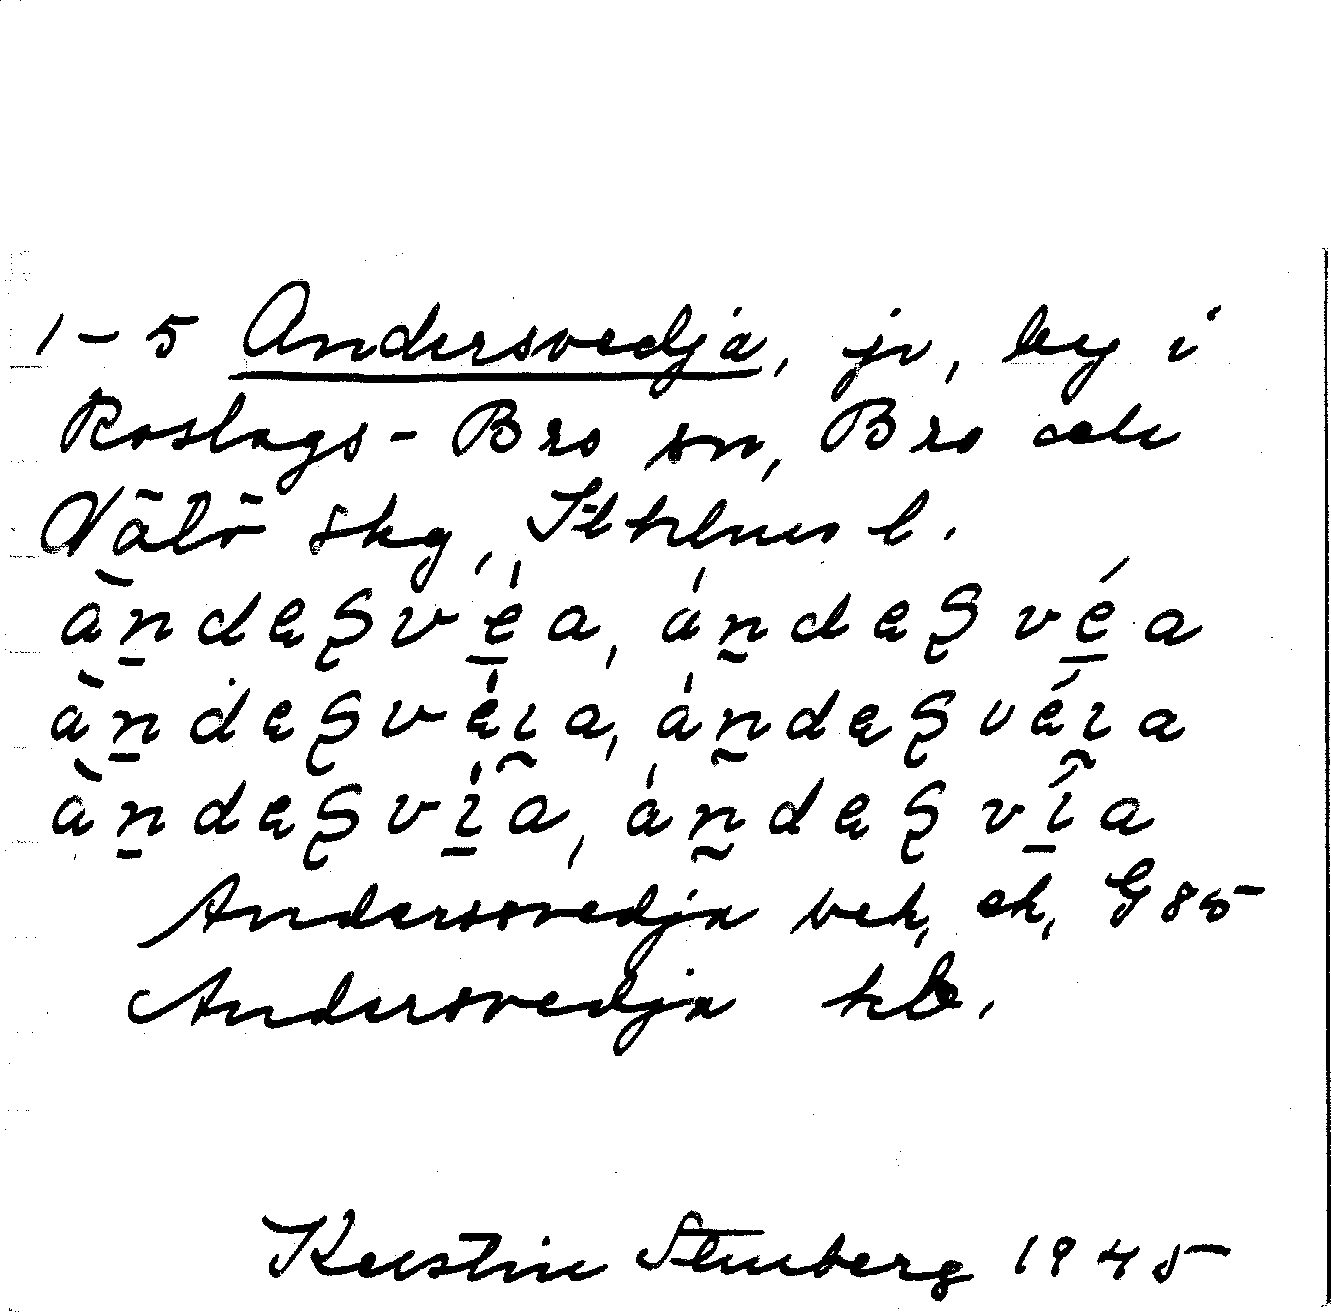 1-5 Andersvedja, jv, by i
Roslags-Bro sn, Bro och
Vätö skg, Sthlms l.
àndęşvéa, ándęşvéa
àndęşvéıa, ándęşvéıa
àndęşvía, ándęşvía
Andersvedja bek, ek, G 85
Andersvedja hb.
Kerstin Stenberg 1945